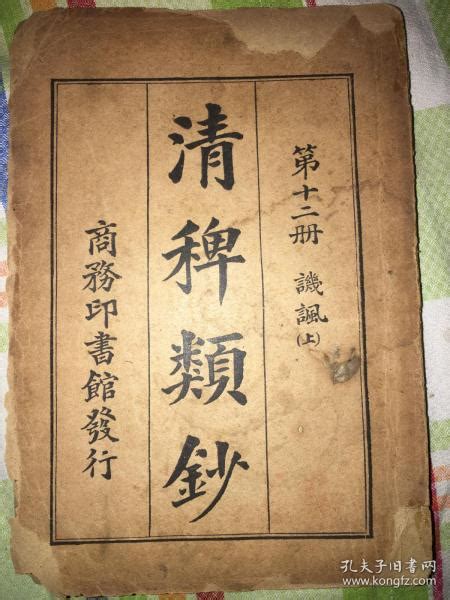 第十二册 譏諷(上)
清稗類鈔
商務印書館發行
孔夫子旧书网
www.kongfz.com